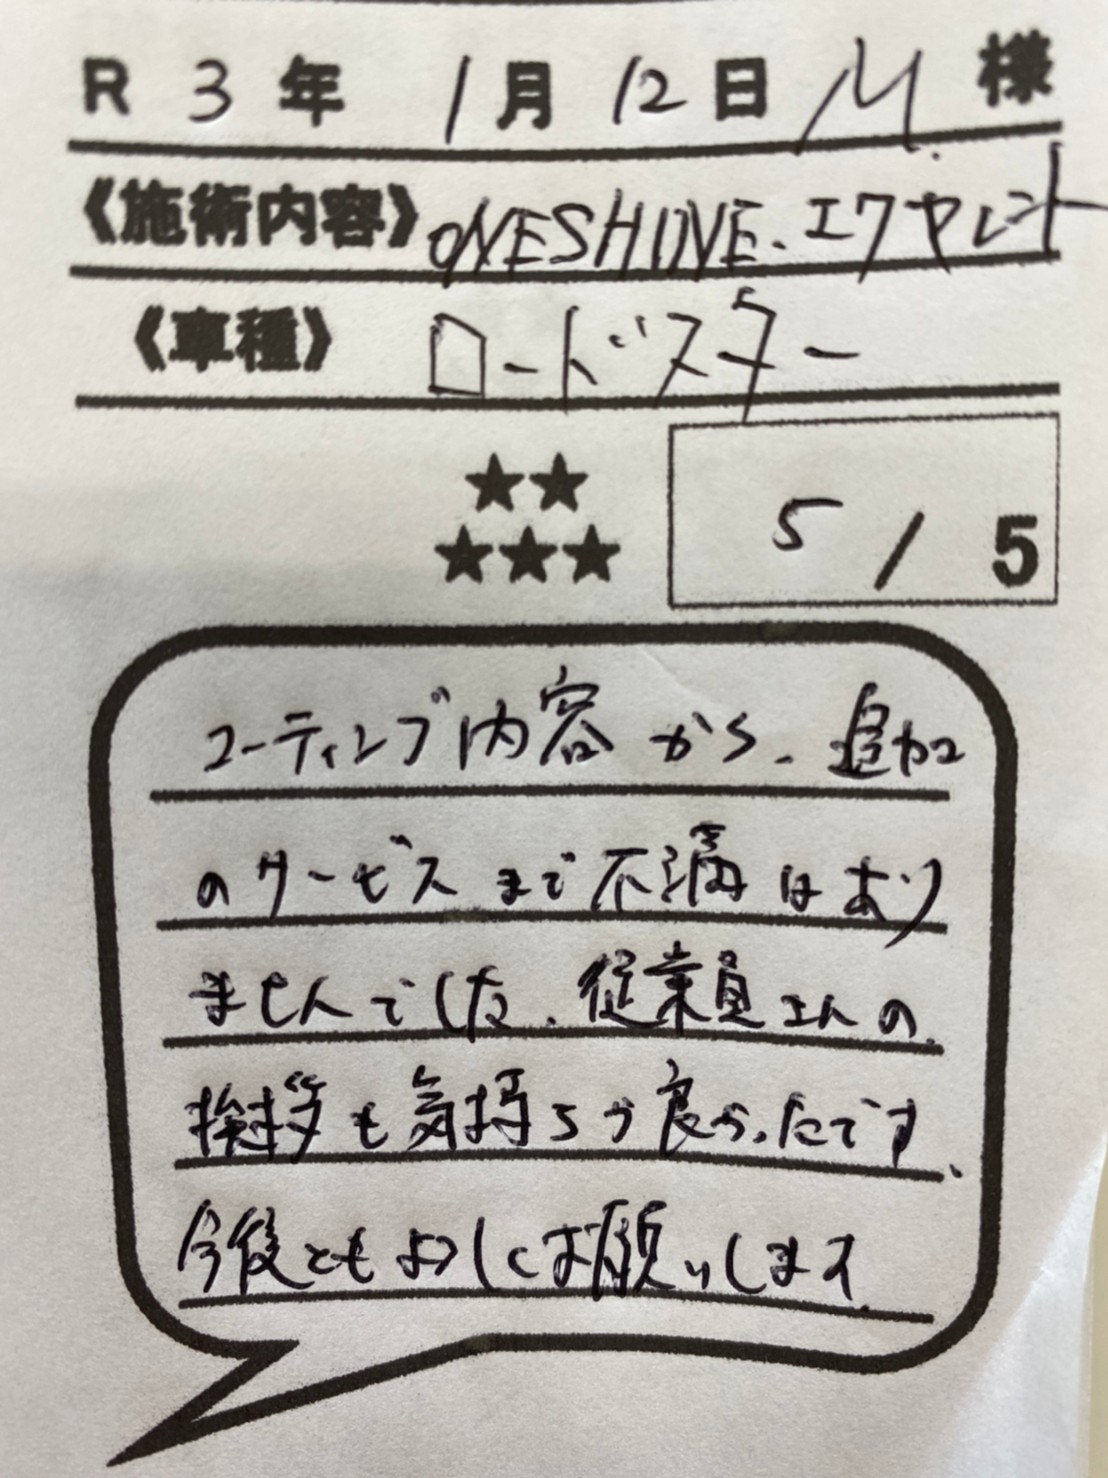 R 3 年 1 月 12 日 M. 様
《施術内容》 ONESHINE. エクセレント
《車種》 ロードスター
★★
★★★
5 / 5
コーティング内容から、追加
のサービスまで不満はあり
ませんでした。従業員さんの
挨拶も気持ちが良かったです、
今後ともよろしくお願いします。